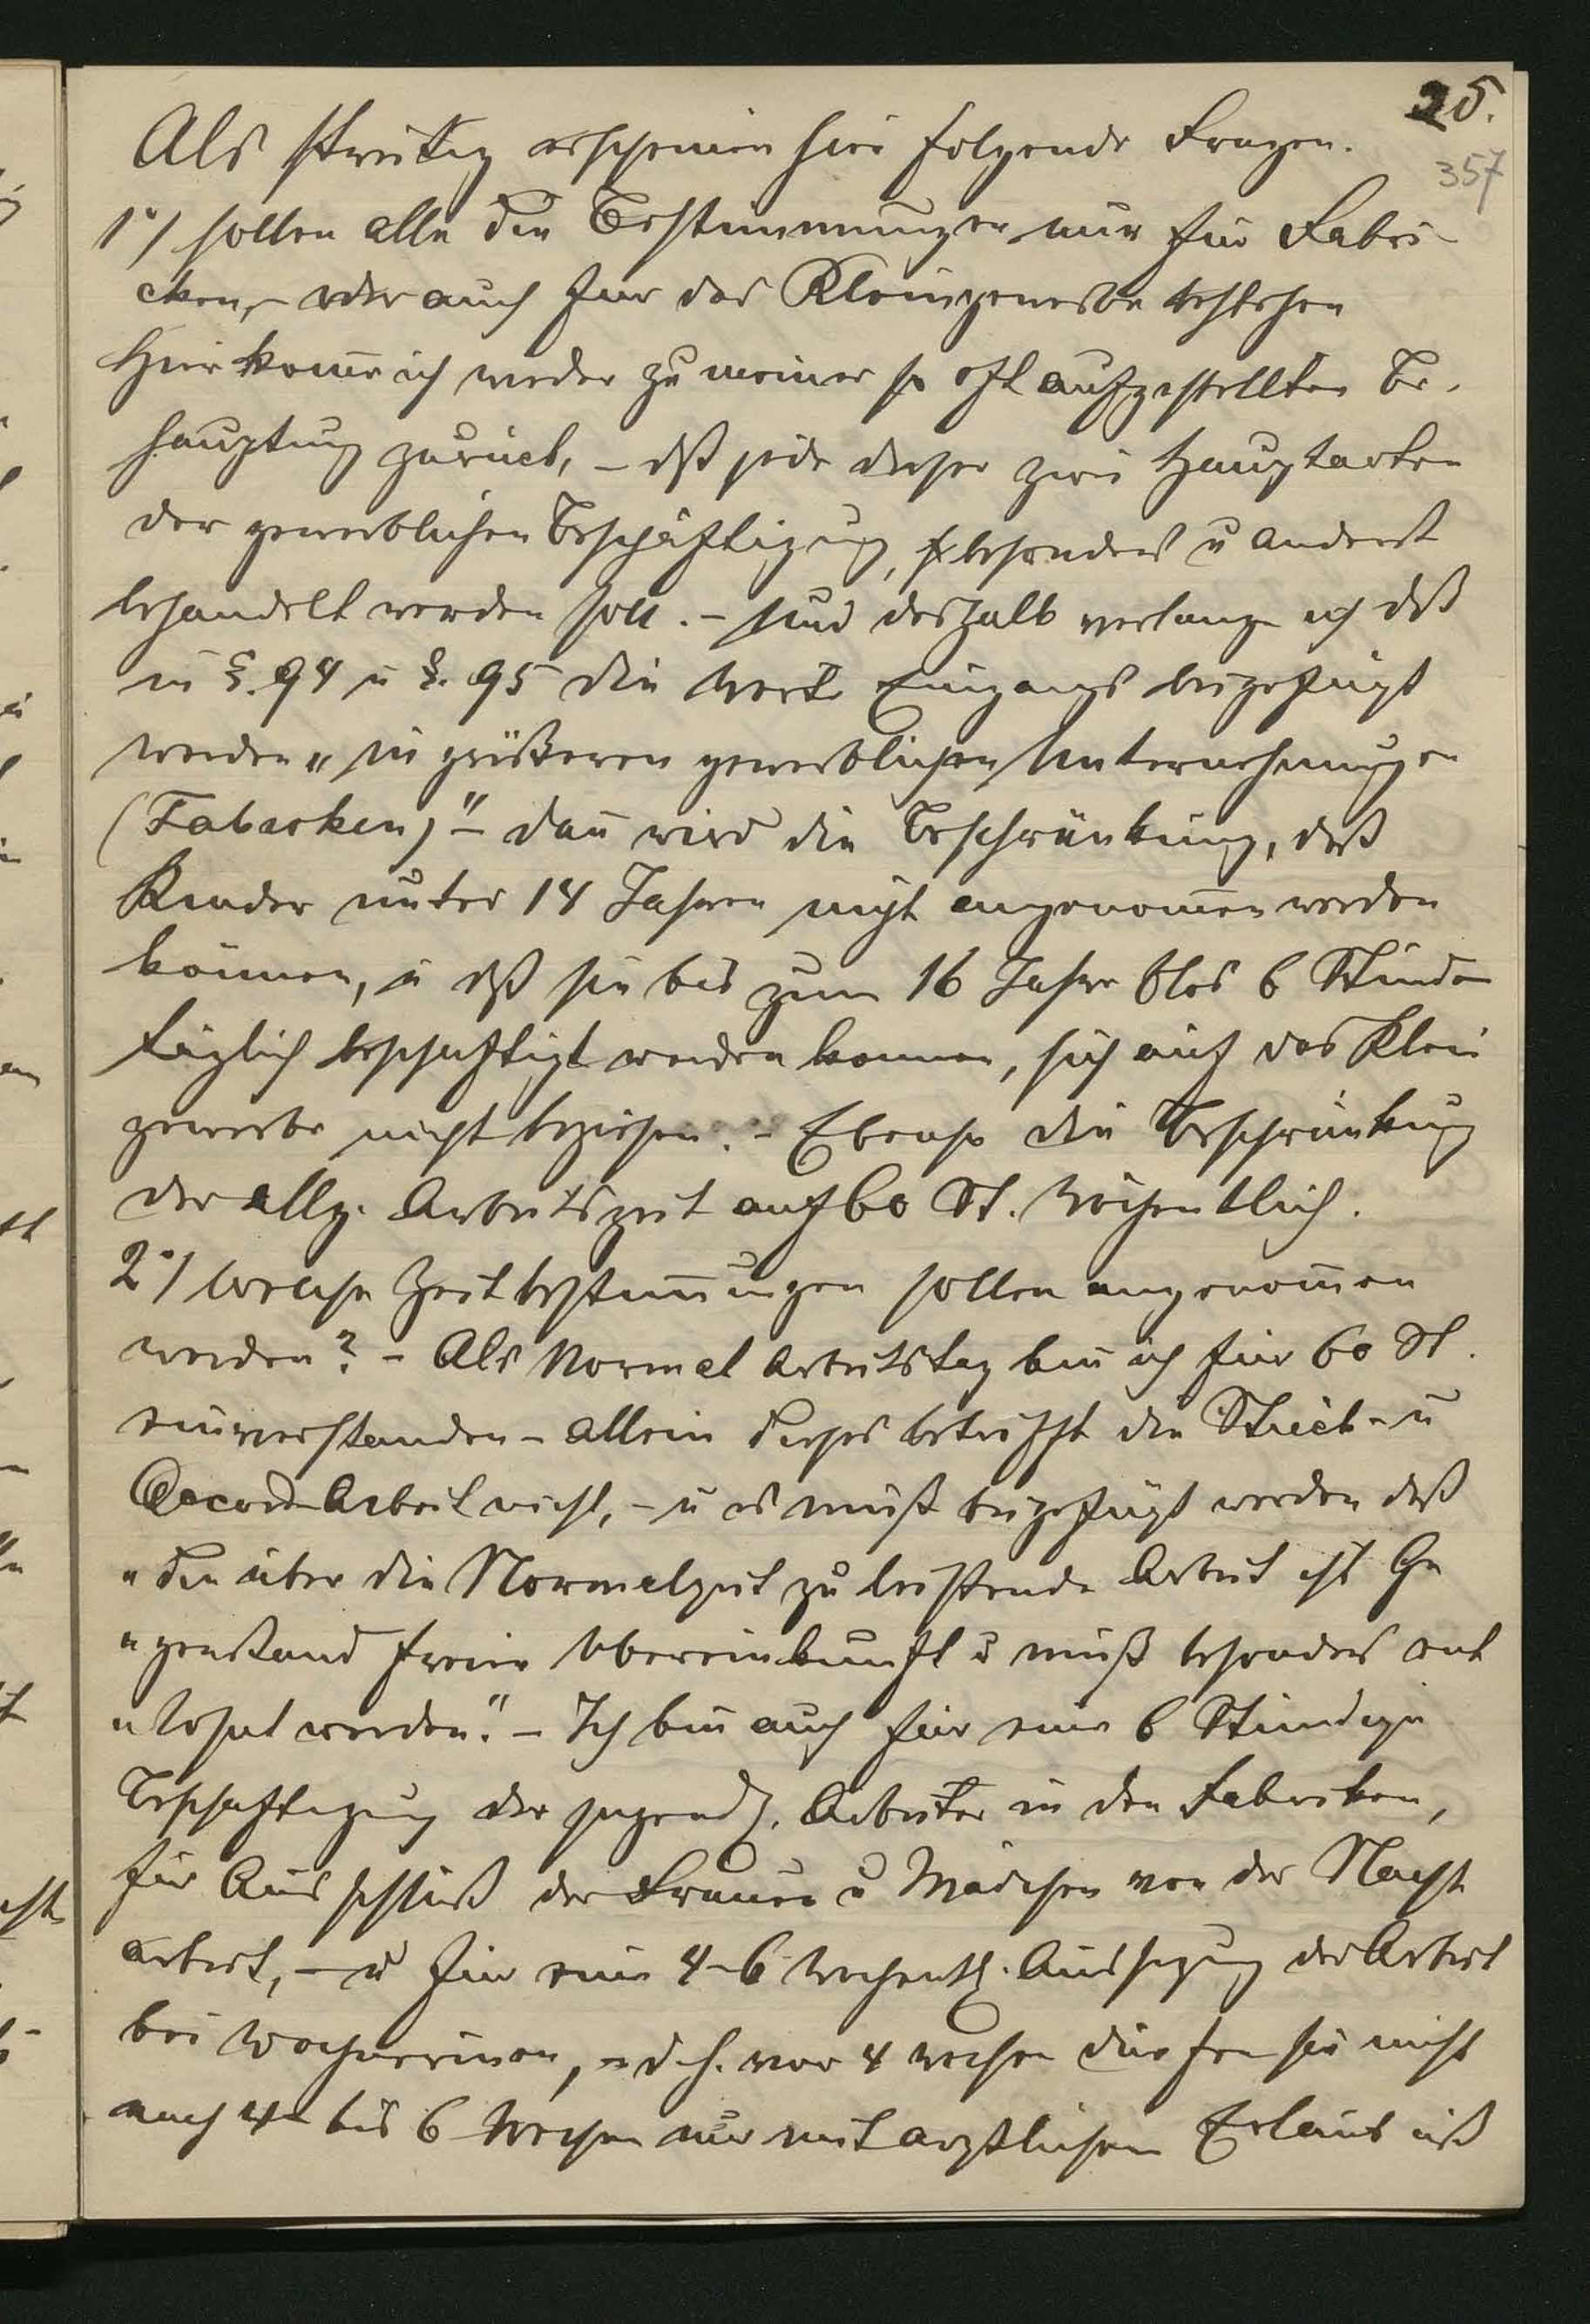 25.
357
Als streitig erscheinen hier folgende Fragen.
1°/ sollen alle die Bestimmungen nur für Fabri-
cken, – oder auch für das Kleingewerbe bestehen
Hier kom̄e ich wieder zu meiner so oft aufgestellten Be-
hauptung zurück, – dß jede dieser zwei Hauptarten
der gewerblichen Beschäftigung, besonders u anderst
behandelt werden soll. – und deshalb verlange ich dß
in §. 94 u §. 95 die Worte Eingangs beigefügt
werden „in größeren gewerblichen Unternehmungen
(Fabriken)" – dan̄ wird die Beschränkung, daß
Kinder unter 14 Jahren nicht angenom̄en werden
können, u dß sie bis zum 16 Jahre blos 6 Stunden
täglich beschäftigt werden konnen, sich auf das Klein
gewerbe nicht beziehen. – Ebenso die Beschränkung
der allg. Arbeitszeit auf 60 St. wöchentlich.
2°/ Welche Zeitbestim̄ungen sollen angenom̄en
werden? – Als Normal Arbeitstag bin ich für 60 St.
einverstanden – allein dieses betrifft die Stück- u
Accord-Arbeit nicht, – u es muß beigefügt werden daß
„die über die Normalzeit zu leistende Arbeit ist Ge
„genstand freier Übereinkunft u muß besonders ent
„lohnt werden." – Ich bin auch für eine 6 Stündige
Beschäftigung der jugendl. Arbeiter in den Fabriken,
für Ausschluß der Frauen u Mädchen von der Nacht
arbeit, – u für eine 4–6 wochentl. Aussezung der Arbeit
bei Wöchnerinen, – d. h. vor 4 wochen dürfen sie nicht
nach 4– bis 6 Wochen nur mit arztlichen Erlaubniß